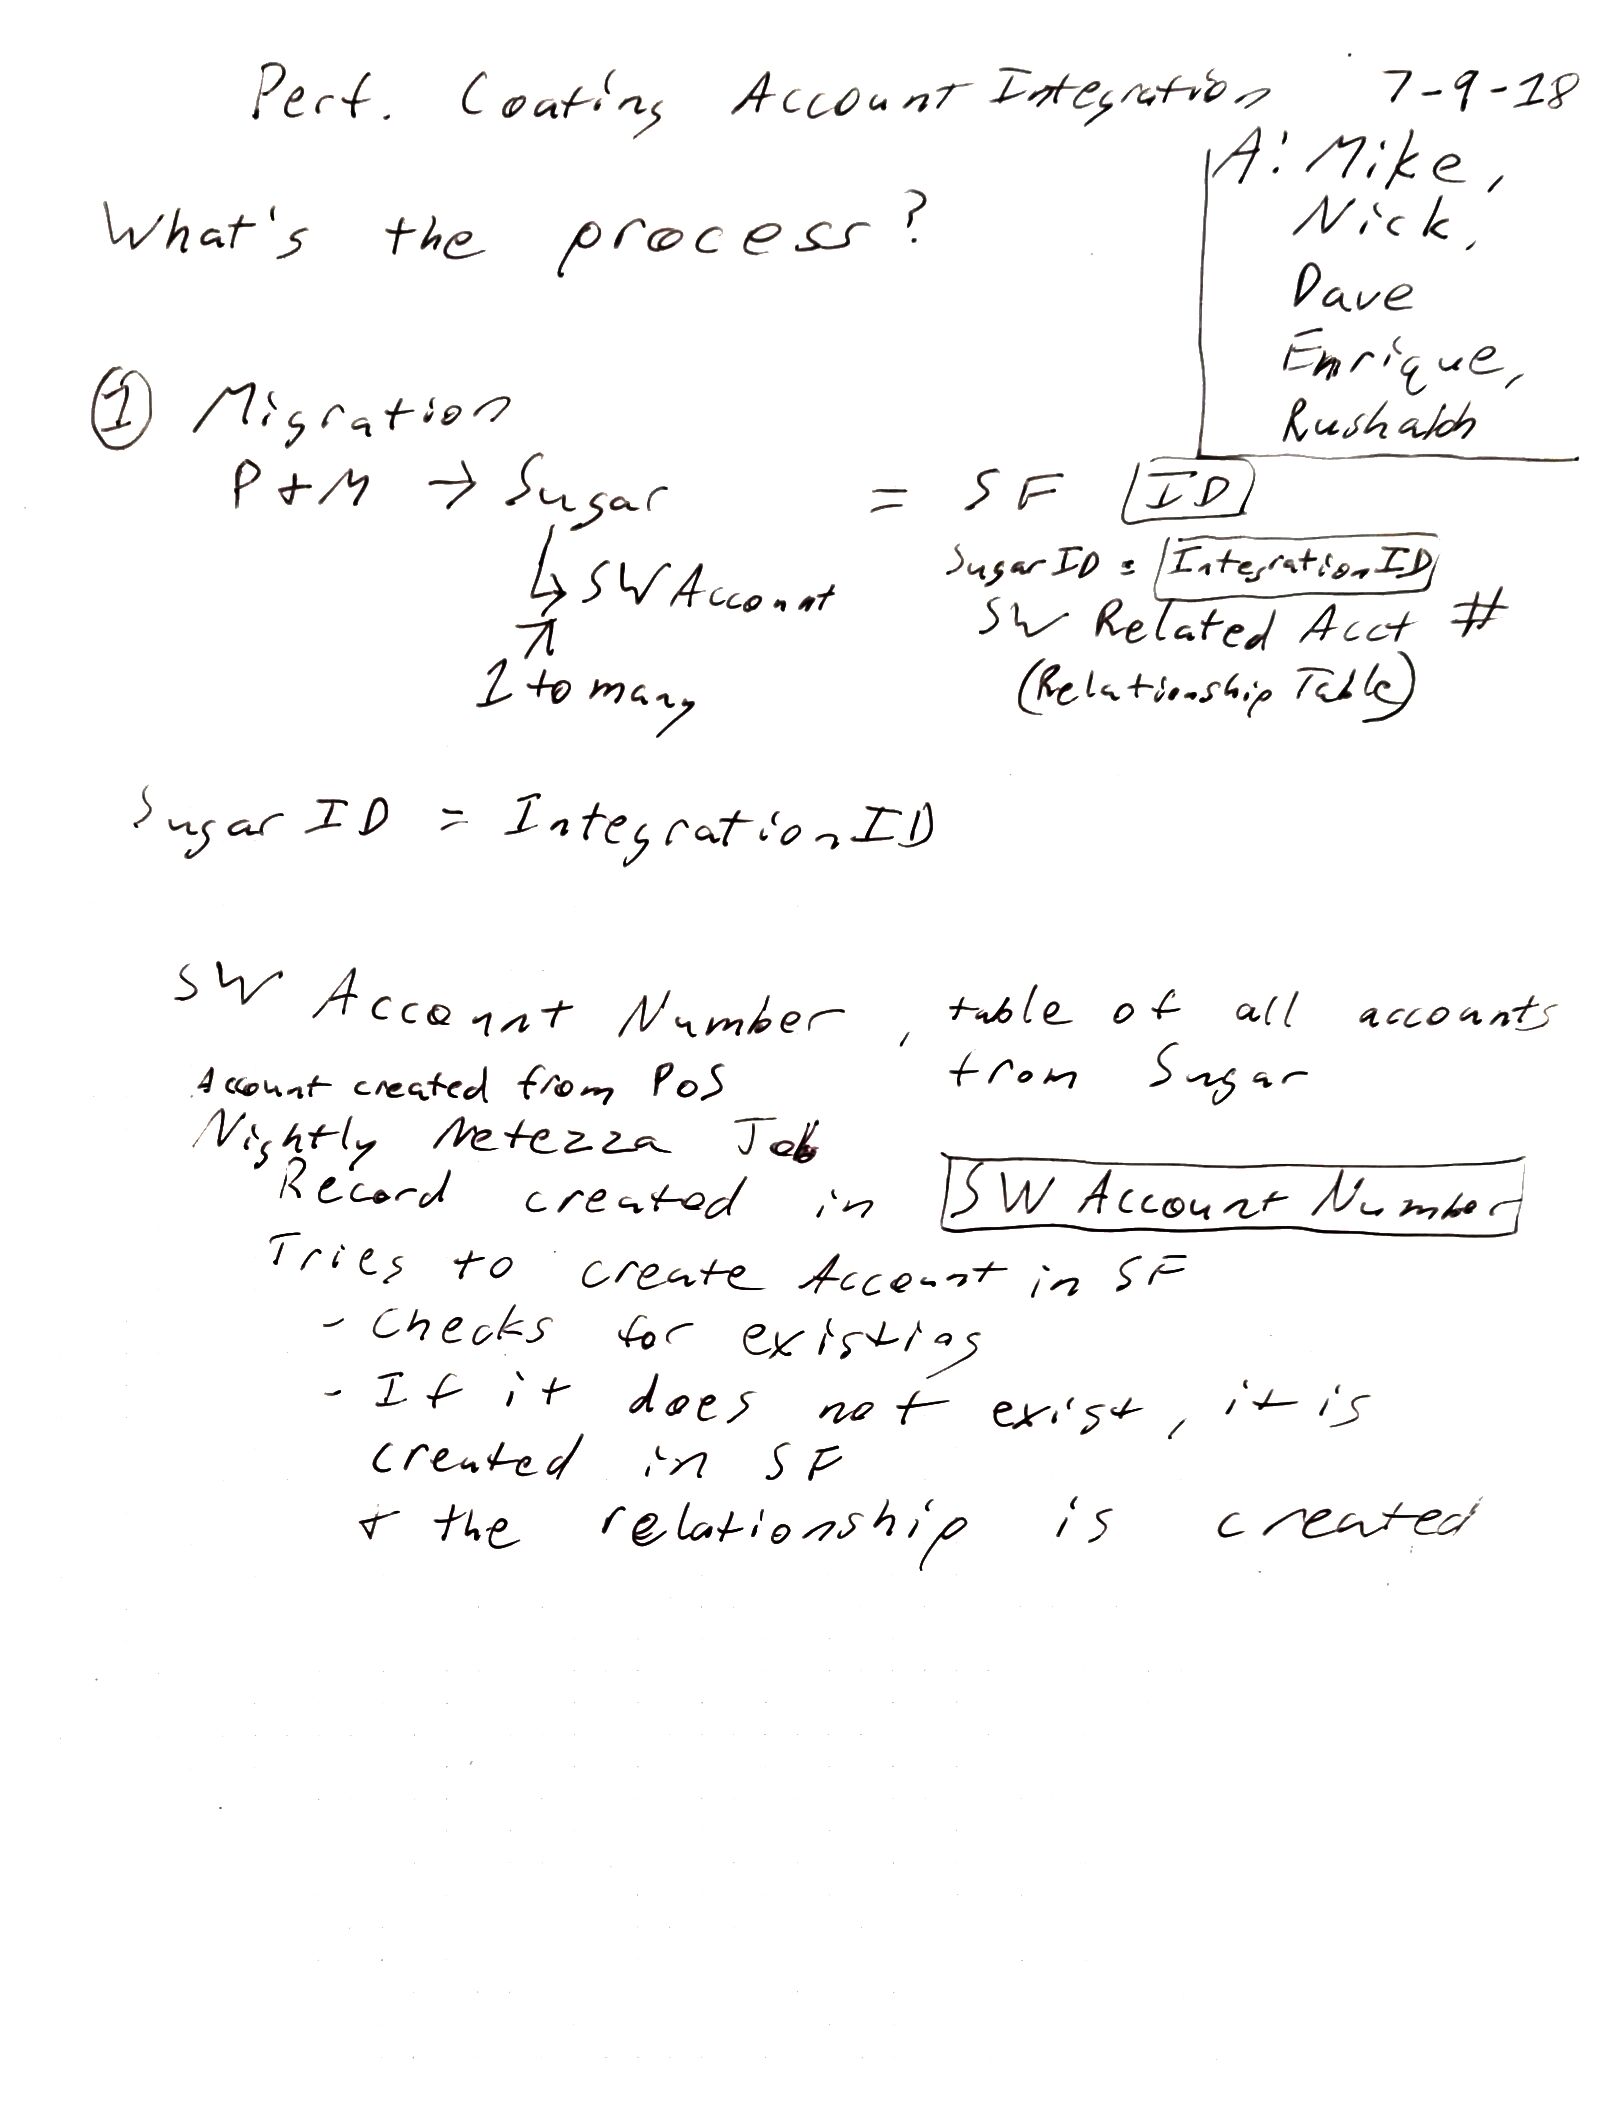 Perf. Coating Account Integration 7-9-18
A: Mike,
Nick,
Dave
Enrique,
Rushabh
What's the process?
① Migration
P + M → Sugar = SF ID
↳ SW Account
SugarID = IntegrationID
SW Related Acct #
(Relationship Table)
↗
1 to many
Sugar ID = IntegrationID
SW Account Number, table of all accounts
from Sugar
Account created from PoS
Nightly Netezza Job
Record created in SW Account Number
Tries to create Account in SF
- Checks for existing
- If it does not exist, it is
created in SF
+ the relationship is created